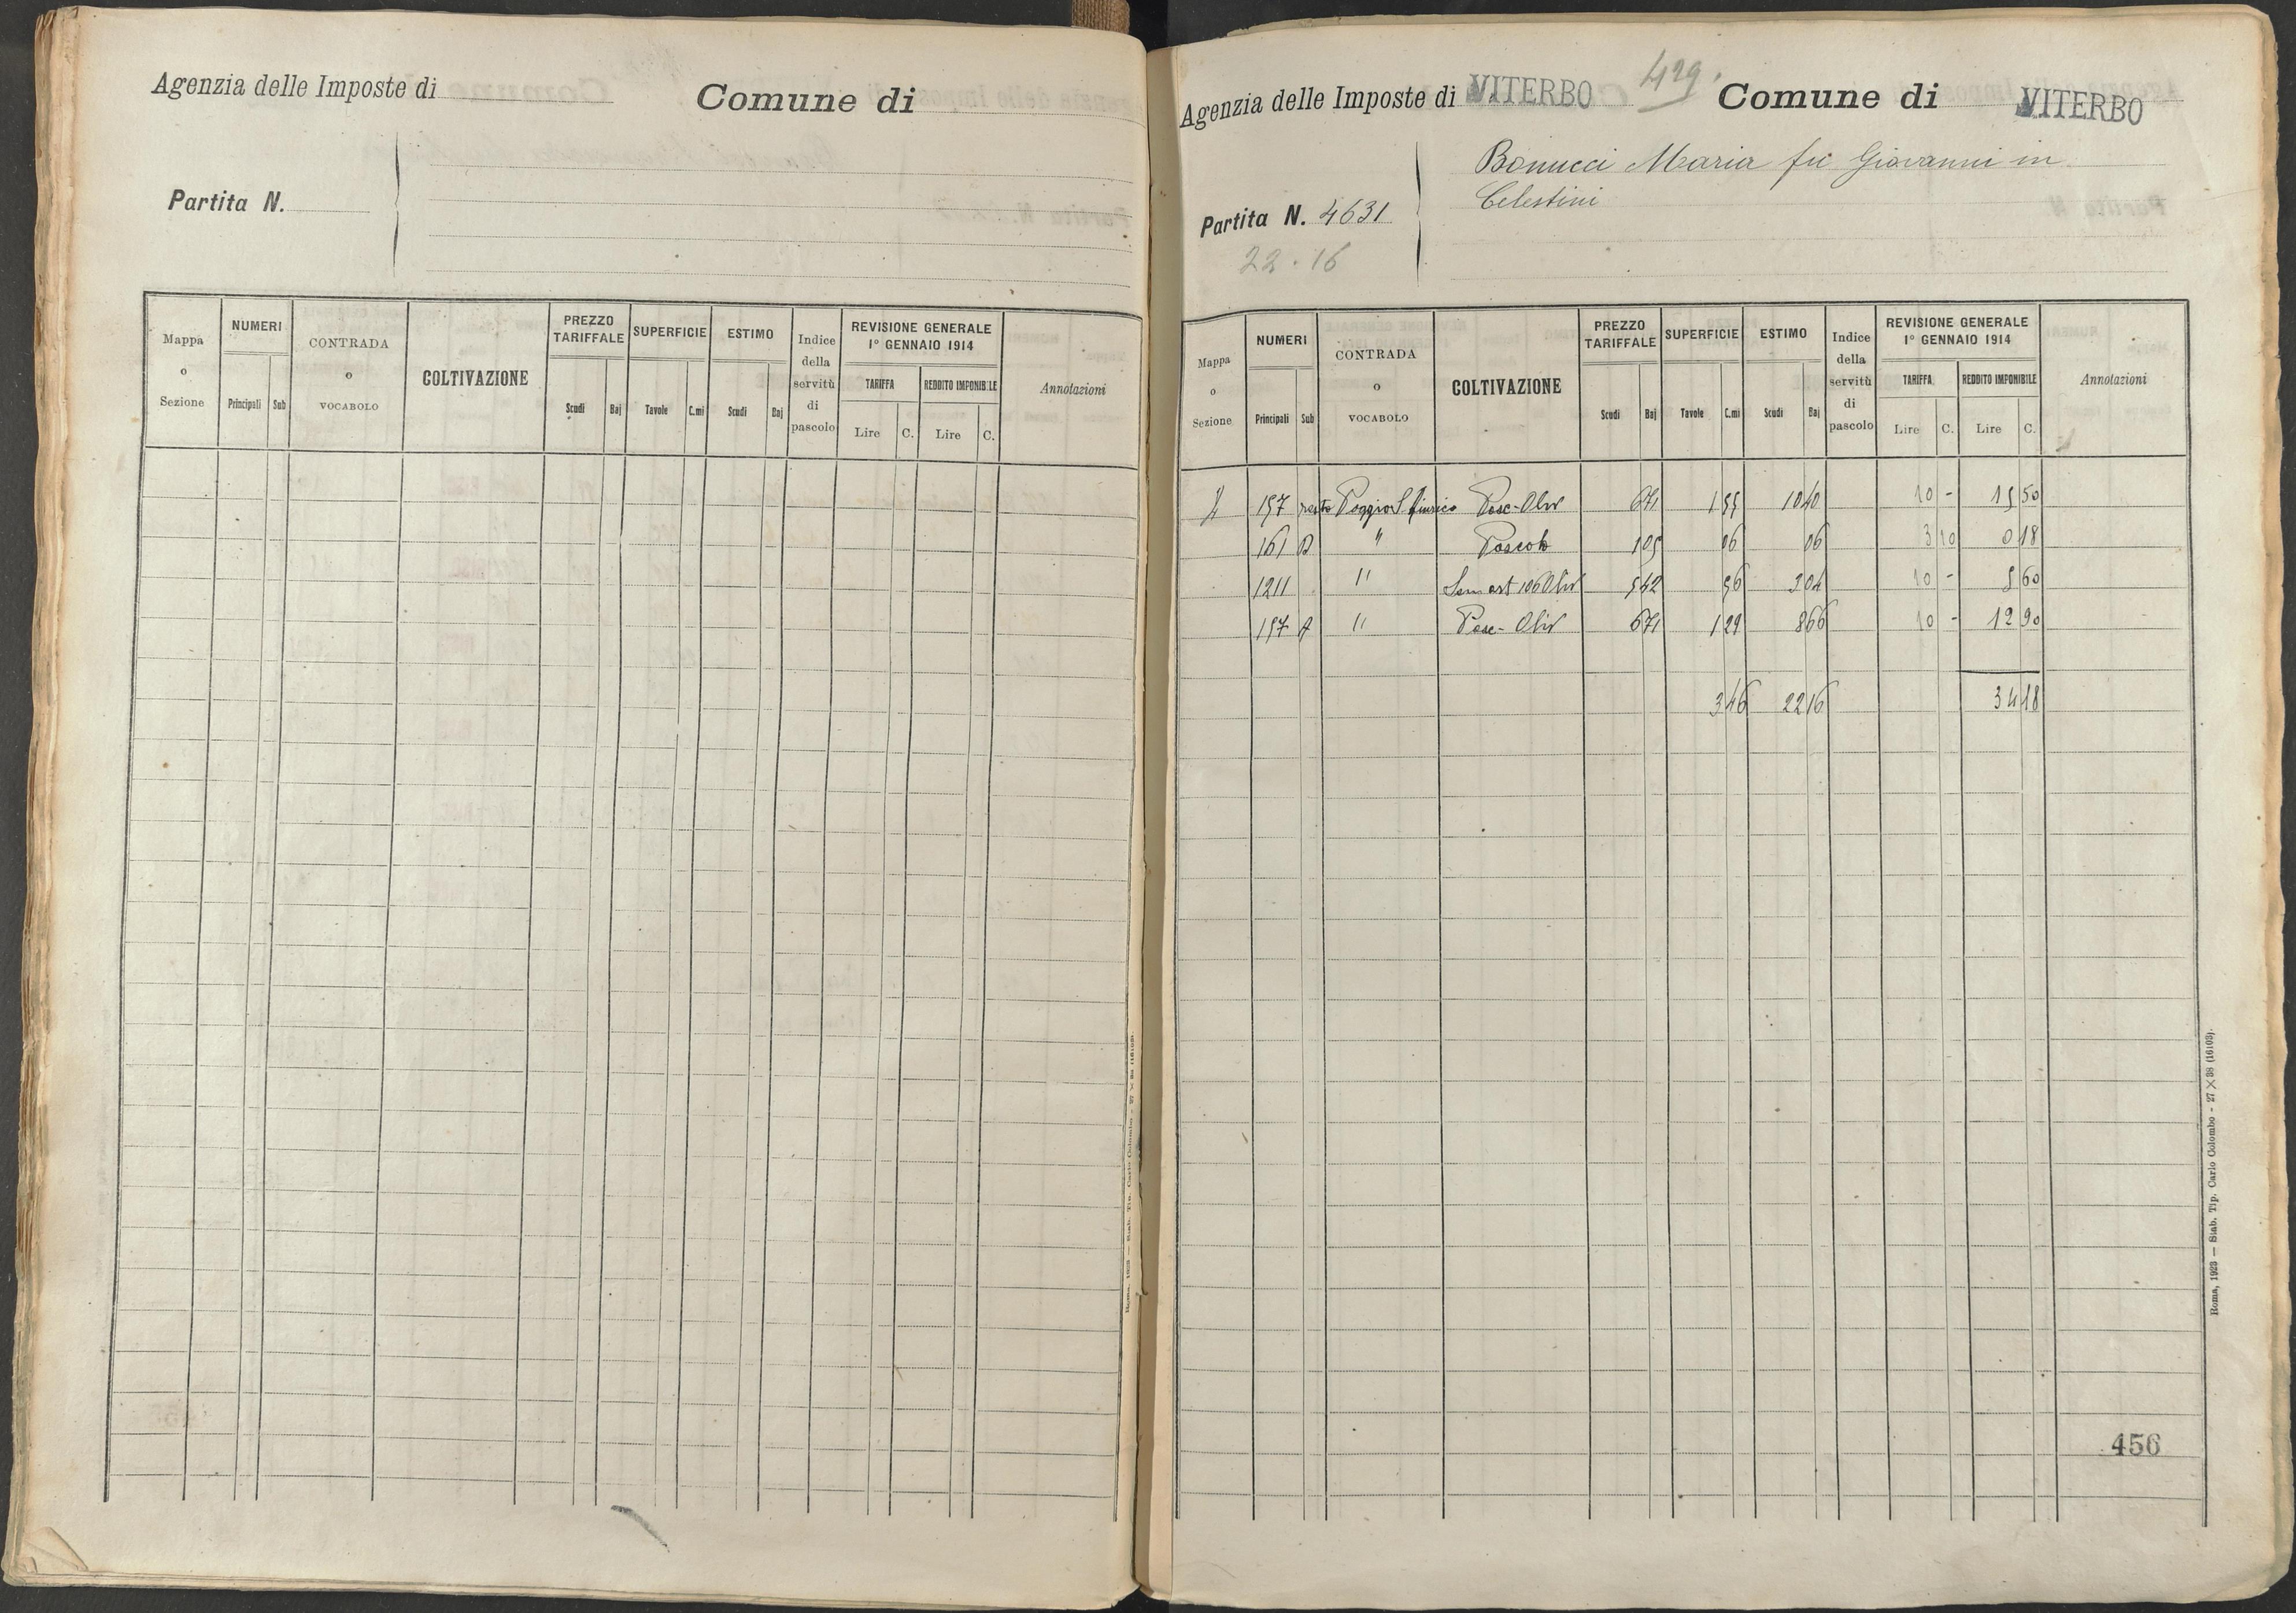 Agenzia delle Imposte di
Comune di
Partita N.
Mappa o Sezione
NUMERI
Principali Sub
CONTRADA o VOCABOLO
COLTIVAZIONE
PREZZO TARIFFALE
Scudi Baj
SUPERFICIE
Tavole C.mi
ESTIMO
Scudi Baj
Indice della servitù di pascolo
REVISIONE GENERALE 1° GENNAIO 1914
TARIFFA REDDITO IMPONIBILE
Lire C. Lire C.
Annotazioni
Roma, 1923 — Stab. Tip. Carlo Colombo - 27 × 38 (16103).
429.
Agenzia delle Imposte di VITERBO
Comune di VITERBO
Bonucci Maria fu Giovanni in
Celestini
Partita N. 4631
22.16
Mappa o Sezione
NUMERI
Principali Sub
CONTRADA o VOCABOLO
COLTIVAZIONE
PREZZO TARIFFALE
Scudi Baj
SUPERFICIE
Tavole C.mi
ESTIMO
Scudi Baj
Indice della servitù di pascolo
REVISIONE GENERALE 1° GENNAIO 1914
TARIFFA REDDITO IMPONIBILE
Lire C. Lire C.
Annotazioni
157 resto Poggio Pasc-Oliv 6 71 1 55 10 40 10 - 15 50
161 B " Pascolo 1 05 06 06 3 10 0 18
1211 " Sem 106 Oliv 5 42 56 3 04 10 - 5 60
157 A " Pasc-Oliv 6 71 1 29 8 66 10 - 12 90
3 46 22 16 34 18
456
Roma, 1923 — Stab. Tip. Carlo Colombo - 27 × 38 (16103).